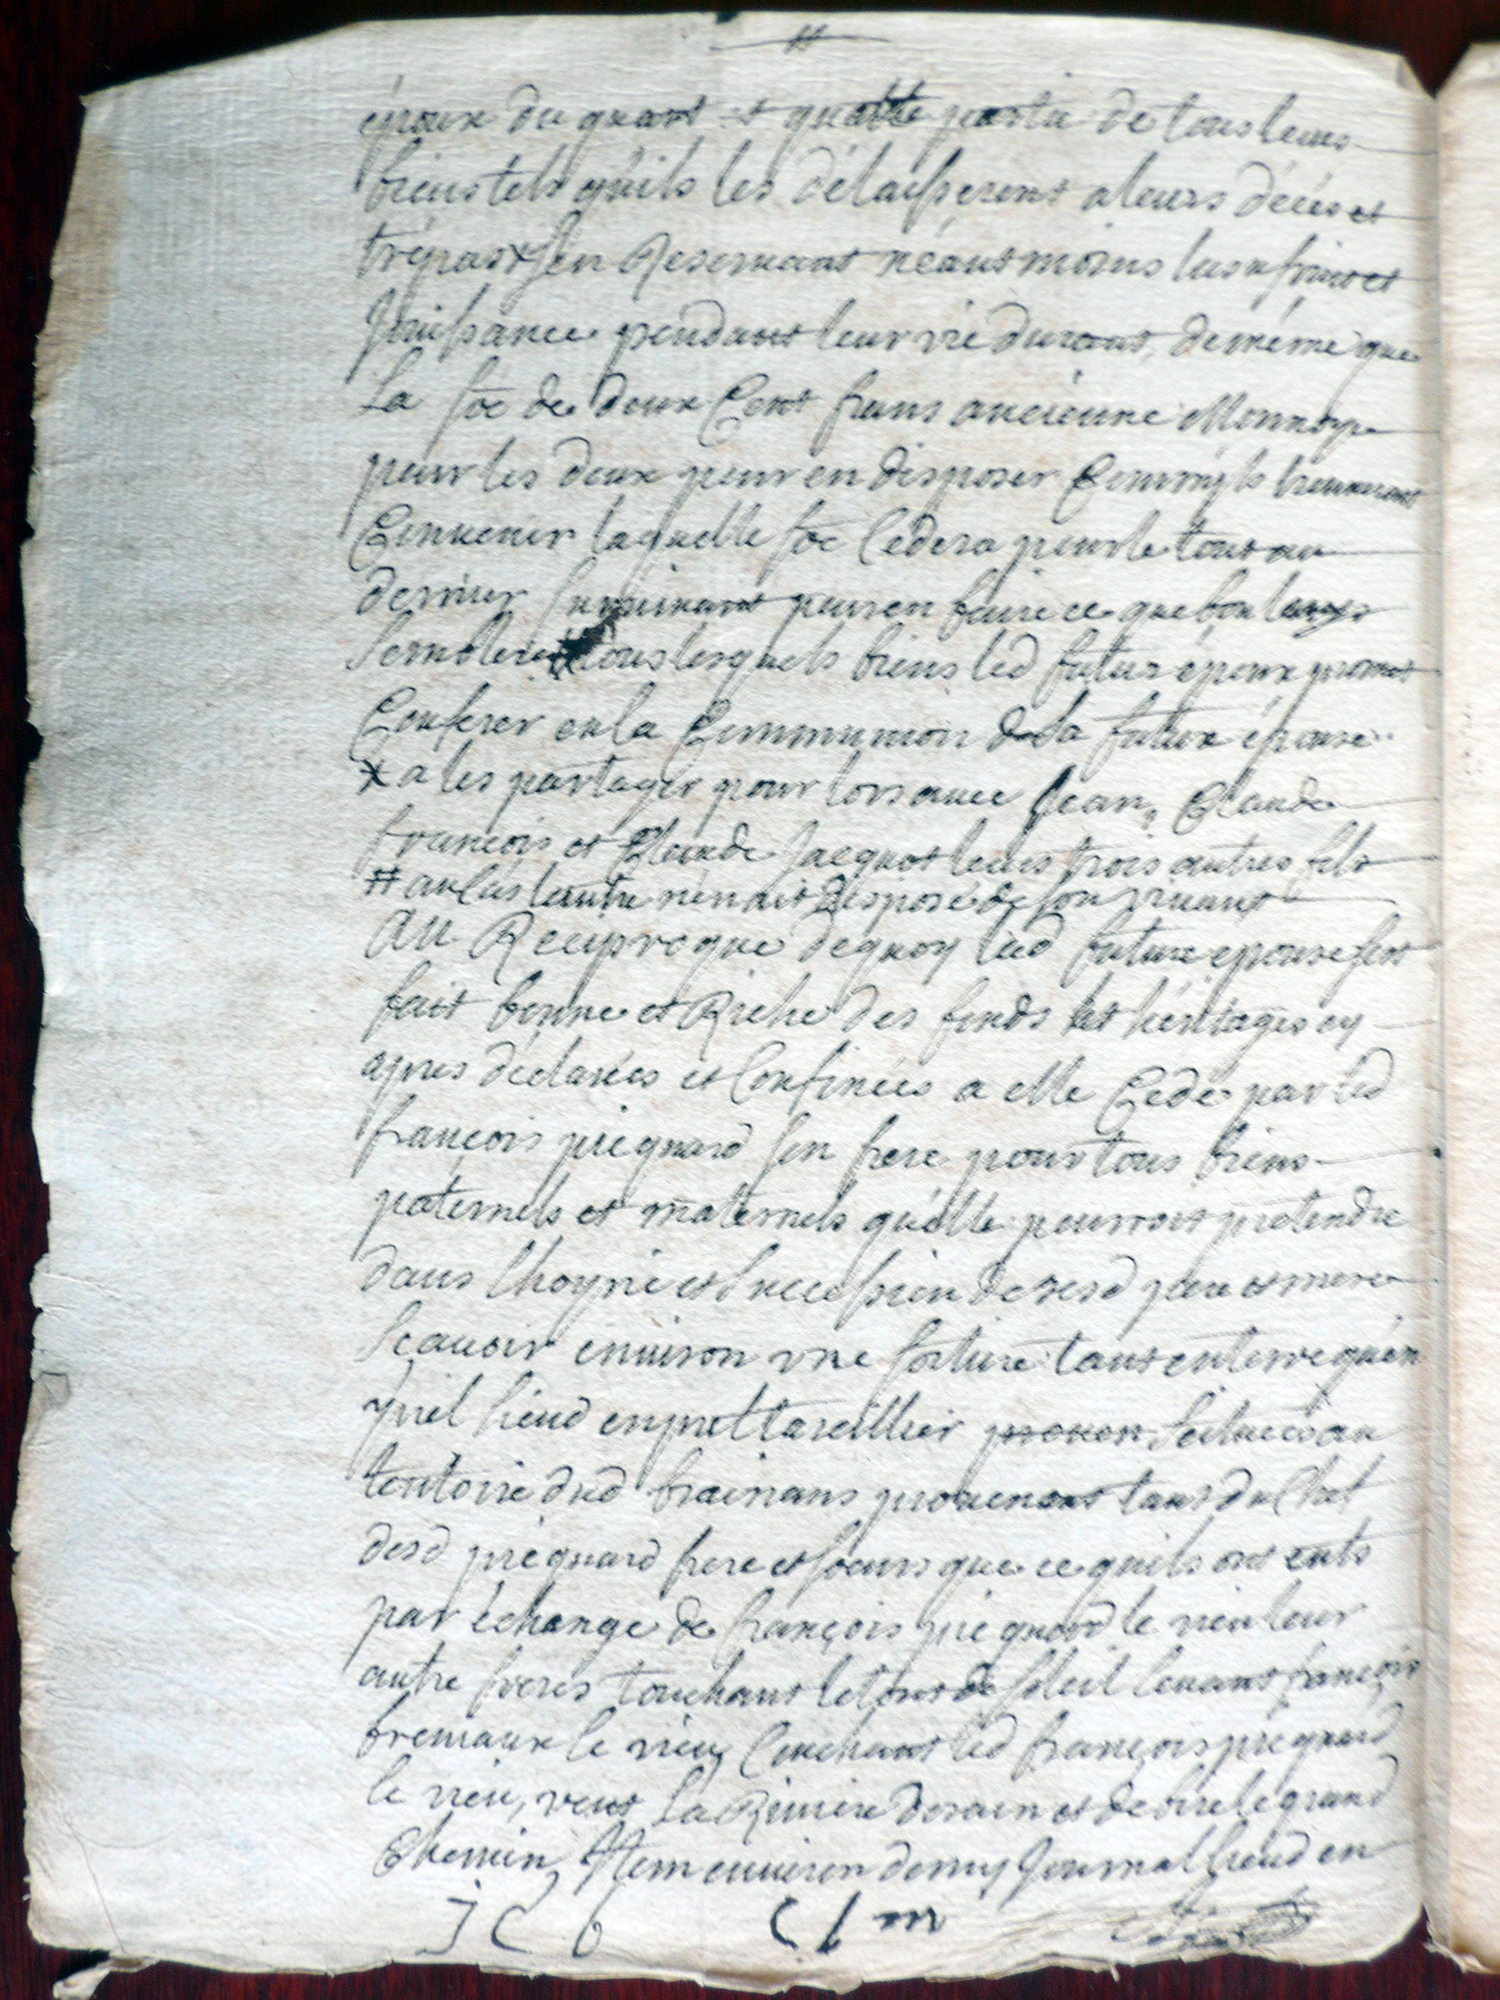 époux du quart et quatre partie de tous leurs
biens tels qu'ils les délaisseront a leurs décés et
trépas * s'en Reservant néantmoins lusufruit et
Jouissance pendant leur vie durant, de même que
La soe de deux Cent frans ancienne Monnoye
pour les deux pour en disposer Comm'ils trouveront
Convenir laquelle soe Cedera pour le tout au
dernier survivant pour en faire ce que bon
semblera # tous lesquels biens led futur époux promet
Conferer en la Communion de la future épouse
* a les partager pour lors avec Jean, Claude
françois et Claude Jacquot leurs trois autres fils
# au Cas lautre n'en ait disposé de son vivant
AU Reciproque dequoy lad future epouse sest
fait bonne et Riche des fonds et héritages cy
apres déclarées et Confinées a elle Cedé par led
françois piéguard son frere pour tous biens
paternels et maternels qu'elle pourroit pretendre
dans lhoyrie et succession de sesd pere et mere
Scavoir environ vne soiture tant en terre qu'en
prel lieud en prel tareillier scituées au
territoire dud brainans provenant tant du Chef
desd piéguard frere et soeurs que ce quils ont euts
par échange de françois piéguard le vieu leur
autre freres touchant le tout de soleil levant françois
bremaux le vieu, Couchant led françois piéguard
le vieu, vent La Riviere dorain et de bise le grand
Chemin, Item environ demy Journal lieud en
J C b C L m